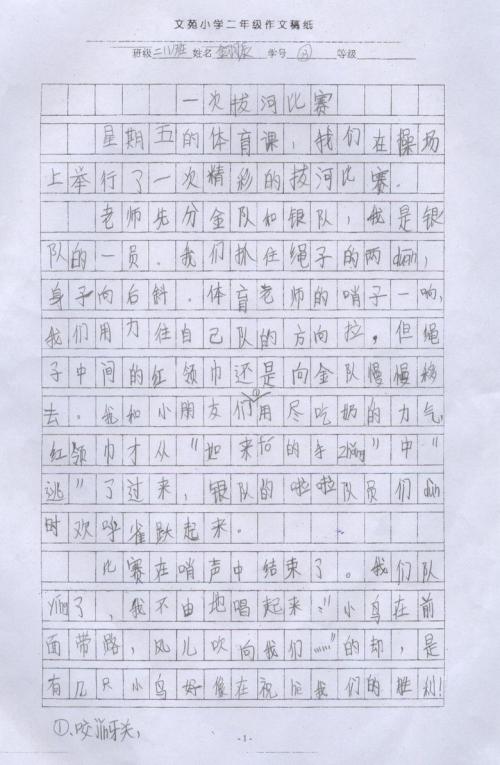 文苑小学二年级作文稿纸
班级二(1)班 姓名 学号 等级
一次拔河比赛
星期五的体育课，我们在操场
上举行了一次精彩的拔河比赛.
老师先分金队和银队，我是银
队的一员.我们抓住绳子的两duān，
身子向后斜.体育老师的哨子一响，
我们用力往自己队的方向拉，但绳
子中间的红领巾还是向金队慢慢移
去.我和小朋友们①用尽吃奶的力气，
红领巾才从“如来佛的手zhǎng”中“
逃”了过来，银队的啦啦队员们dùn
时欢呼雀跃起来。
比赛在哨声中结束了。我们队
yíng了，我不由地唱起来：“小鸟在前
面带路，风儿吹向我们……”的却，是
有几只小鸟好像在祝贺我们的胜利！
①.咬紧牙关，
-1-